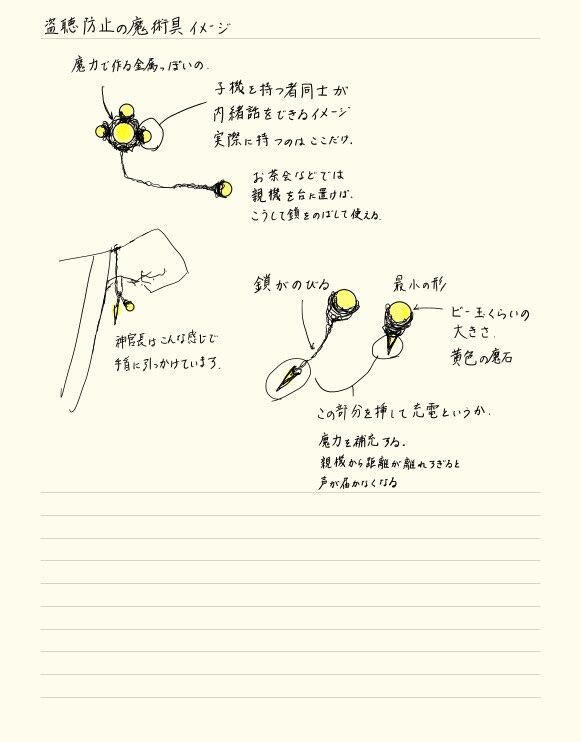 盗聴防止の魔術具イメージ
魔力で作る金属っぽいの.
子機を持つ者同士が
内緒話をできるイメージ
実際に持つのはここだけ.
お茶会などでは
親機を台に置けば.
こうして鎖をのばして使える.
鎖がのびる
最小の形
ビー玉くらいの
大きさ.
黄色の魔石
神官長はこんな感じで
手首に引っかけています.
この部分を挿して充電というか.
魔力を補充する.
親機から距離が離れすぎると
声が届かなくなる